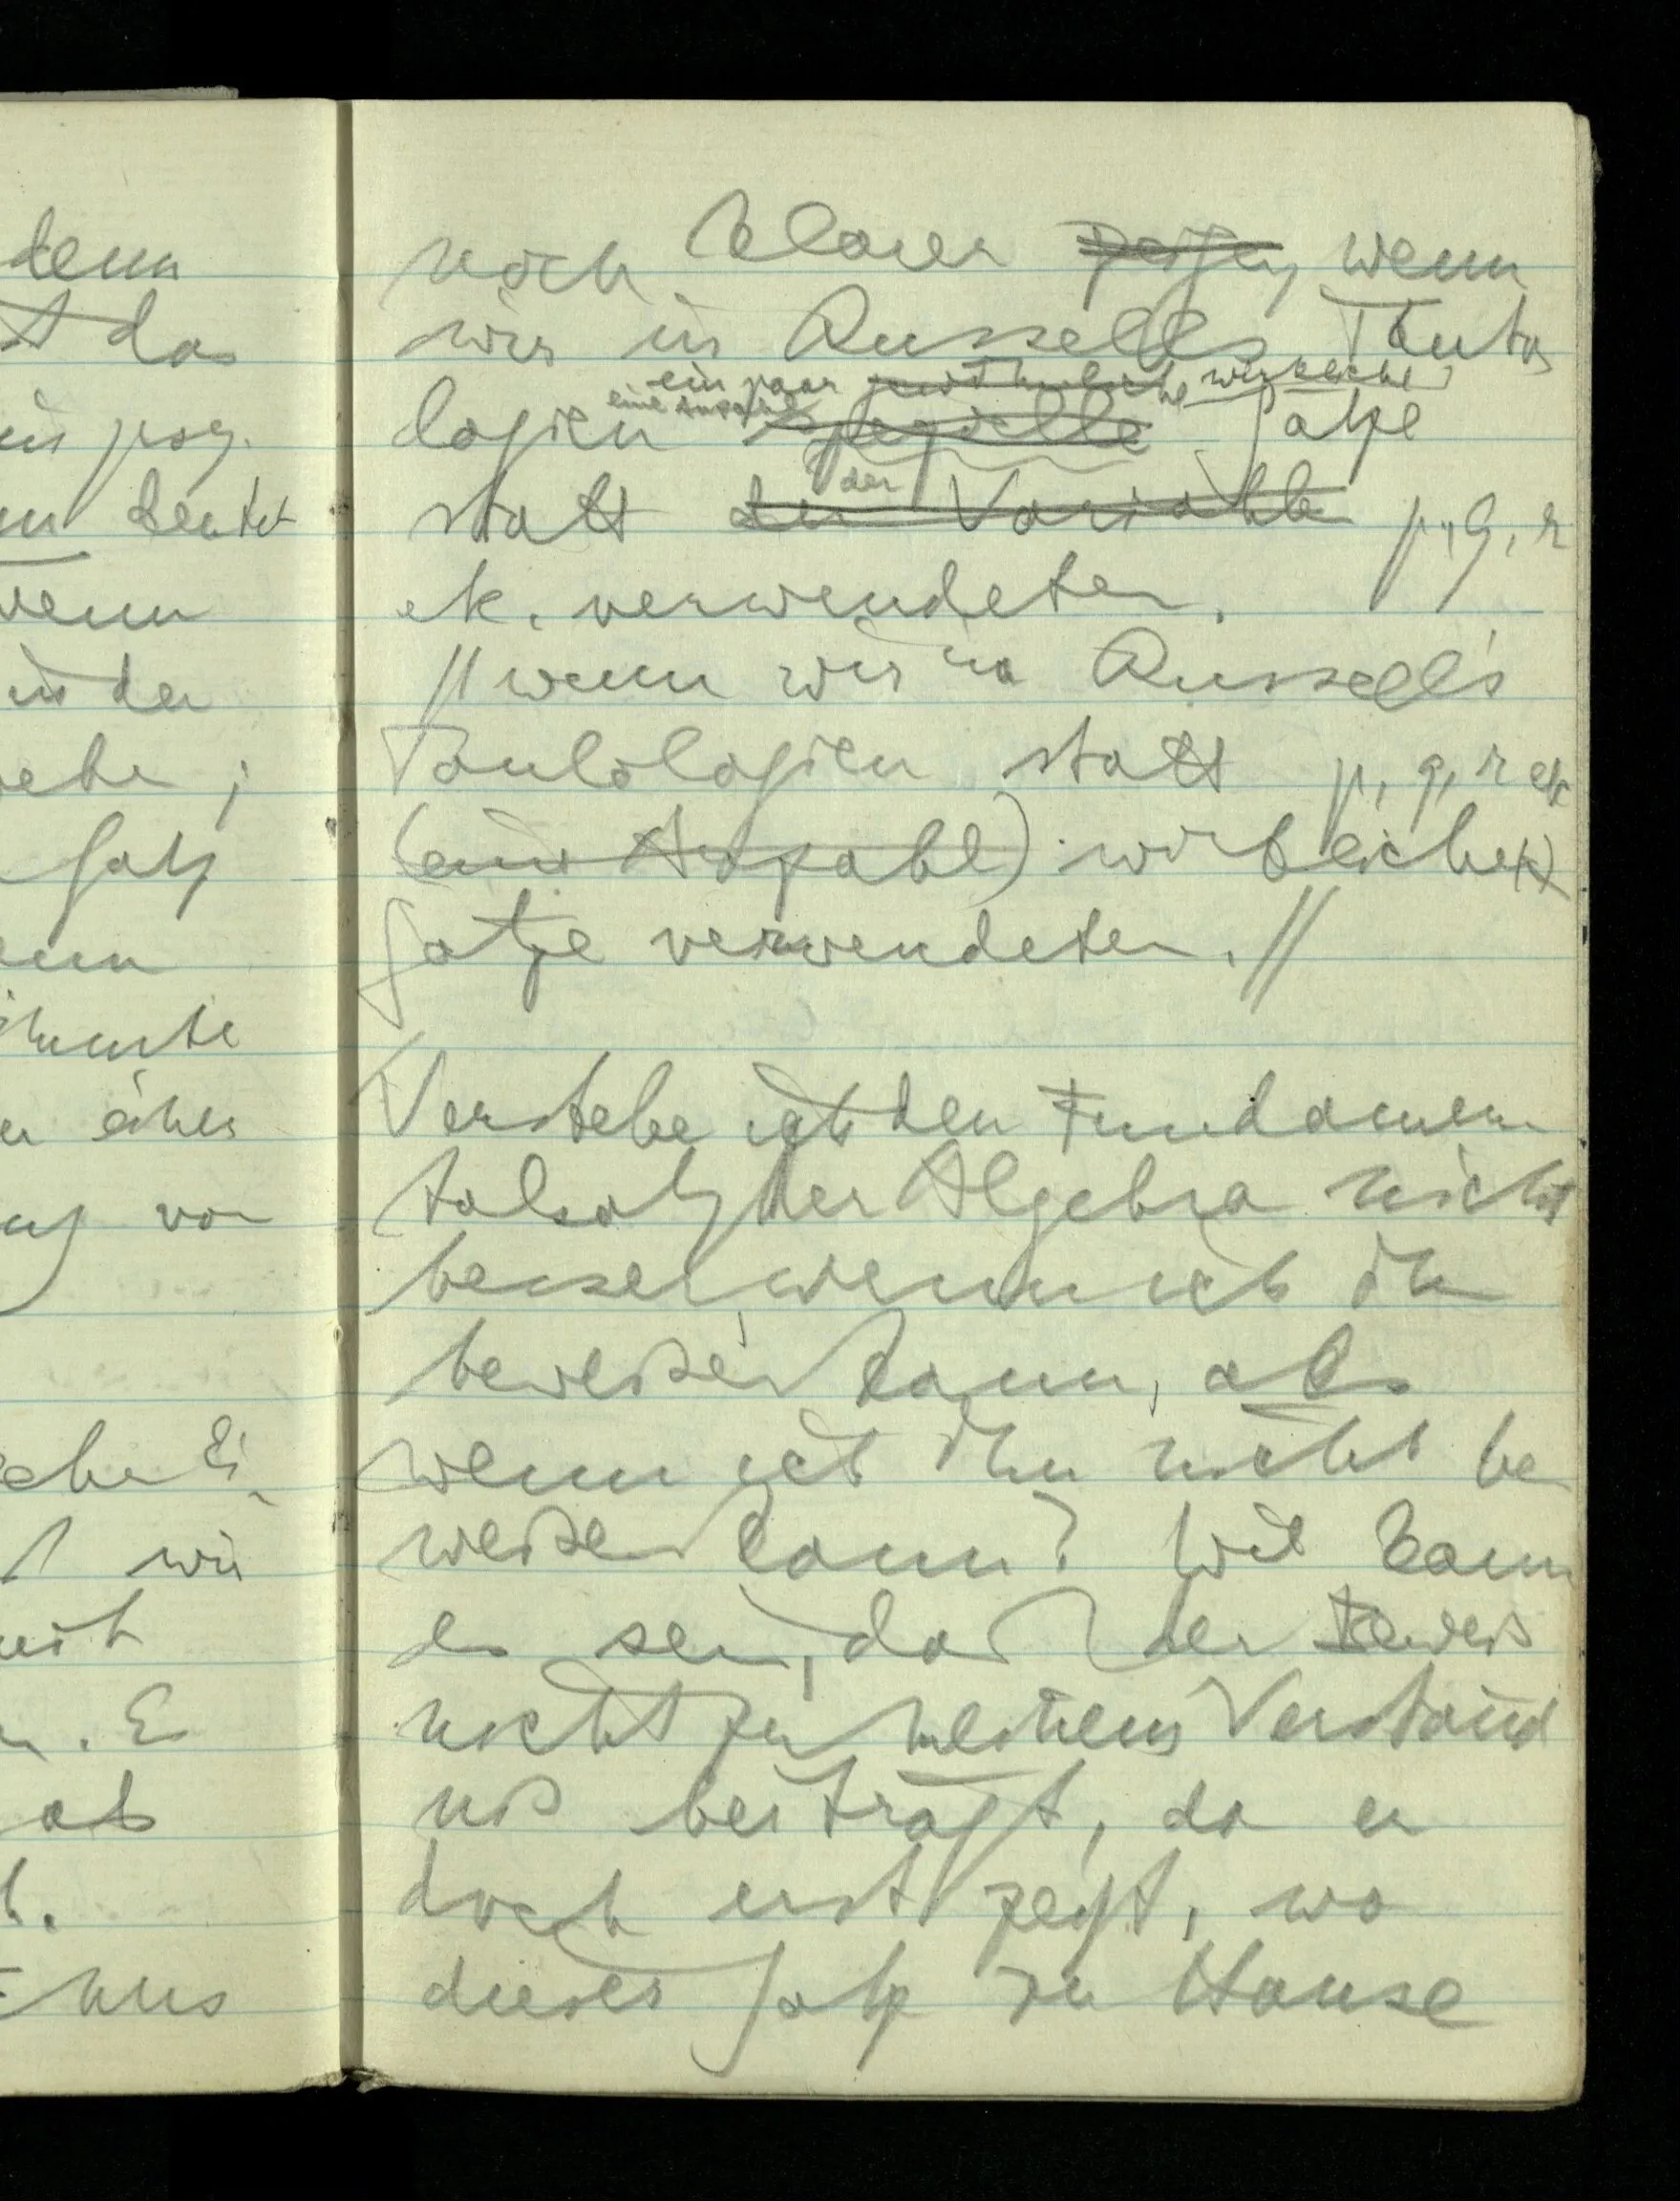 denn
t das
in pos.
deutet
wenn
in der
ehe ;
Satz
enn
stimmte
einer
von
che Ei
wie
mit
. Es
als
uns
noch klarer zeigen, wenn
wir in Russells Tauto
ein paar gewöhnliche wirkliche
eine Anzahl
logien spezielle Sätze
der
statt der Variable p, q, r
etc. verwendeten.
// wenn wir in Russell's
Tautologien statt p, q, r etc
(eine Anzahl) wirkliche(r)
Sätze verwendeten. //
Verstehe ich den Fundamen
talsatz der Algebra nicht
besser, wenn ich ihn
beweisen kann, als
wenn ich ihn nicht be
weisen kann? Wie kann
es sein, daß der Beweis
nicht zu meinem Verständ
niß beiträgt, da er
doch erst zeigt, wo
dieser Satz zu Hause